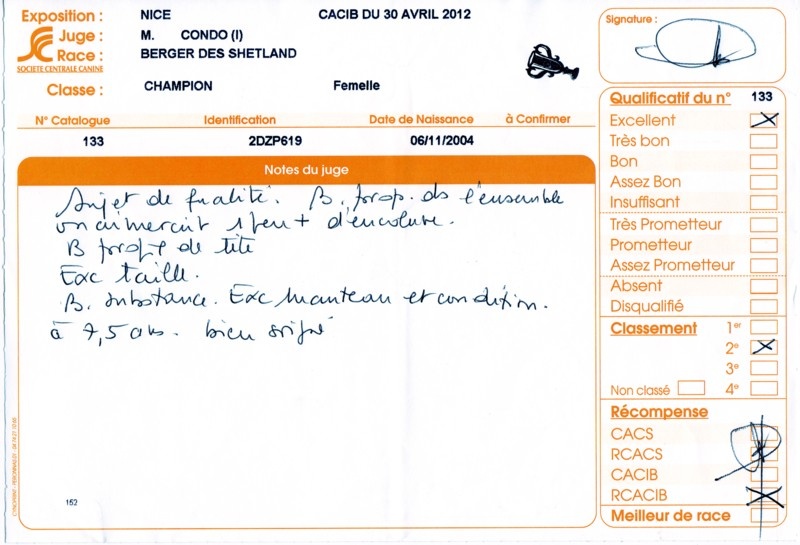 Exposition : NICE CACIB DU 30 AVRIL 2012
Juge : M. CONDO (I)
Race : BERGER DES SHETLAND
SOCIETE CENTRALE CANINE
Classe : CHAMPION Femelle
N° Catalogue Identification Date de Naissance à Confirmer
133 2DZP619 06/11/2004
Notes du juge
Sujet de qualité. B. prop. ds l'ensemble
on aimerait 1 peu + d'encolure.
B prof de tête
Exc taille.
B. substance. Exc manteau et condition.
à 7,5 ans. bien soigné
152
Signature :
Qualificatif du n° 133
Excellent
Très bon
Bon
Assez Bon
Insuffisant
Très Prometteur
Prometteur
Assez Prometteur
Absent
Disqualifié
Classement 1er
2e
3e
Non classé 4e
Récompense
CACS
RCACS
CACIB
RCACIB
Meilleur de race